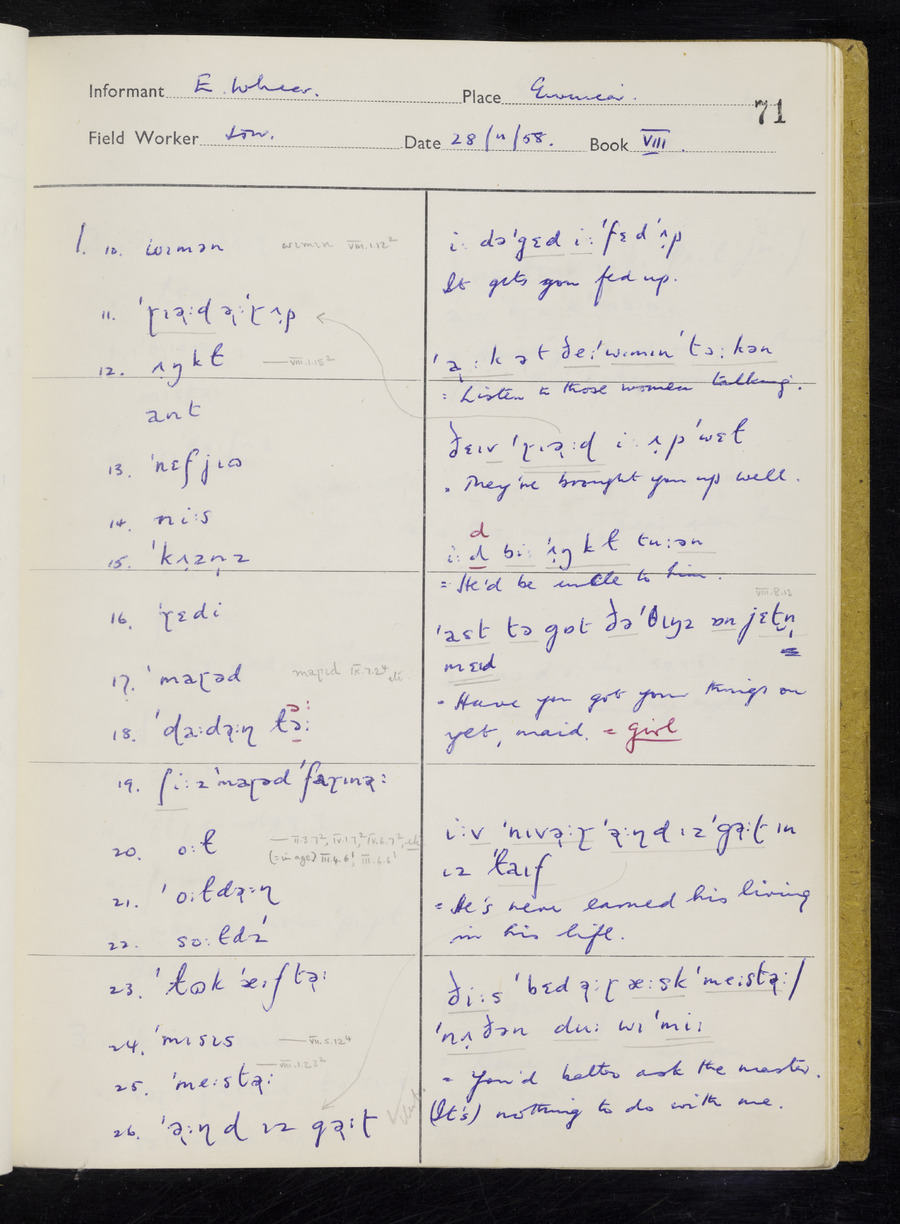 Informant E. Wheer. Place
71
Field Worker Date 28/11/58. Book VIII.
1. 10. wɪmən wɪmɪn VIII.1.12²
11. ˈɽɪəːd əːˈɽ ʌp
12. ʌŋkɫ — VIII.1.15²
ant
13. ˈnɛfjɪʊ
14. niːs
15. ˈkʌznz
16. ˈɽɛdi
17. ˈmaɽəd maɽɪd IX.7.2⁴ etc
18. ˈdaːdəːɳ ɫəː
19. ʃiːz ˈmaɽəd ˈfaɽɪnəː
20. oːɫ — II.3.7², IV.1.7², IV.6.7², etc
(= in age) III.4.6¹, III.6.6¹
21. ˈoːɫdəːɳ
22.
23. ˈɫʊk ˈæːftəː
24. ˈmɪsɪs — VII.5.12⁴
25. ˈmeːstəː — VIII.1.23²
26. ˈəːɳd ɪz gəːɽ
iː dəˈgɛd iː ˈfɛdˈʌp
It gets you fed up.
ˈəːk ət ðeːˈwɪmɪn ˈtɔːkən
= Listen to those women talking.
ðeɪv ˈɽɪəːd iː ʌpˈwɛɫ
= They've brought you up well.
d
iːd biː ˈʌŋkɫ tuːən
= He'd be uncle to him.
VIII.8.12
ˈast tə gɒt ðəˈθɪŋz ɒn jɛtn̩
mɛɪd
= Have you got your things on
yet, maid. = girl
iːv ˈnɪvəːɽ ˈəːɳd ɪz ˈgəːɽ ɪn
ɪz ˈɫaɪf
= He's never earned his living
in his life.
ðiːs ˈbɛdəːɽ æːsk ˈmeːstəː/
ˈnʌðən duː wɪ ˈmiː
= You'd better ask the master.
(It's) nothing to do with me.